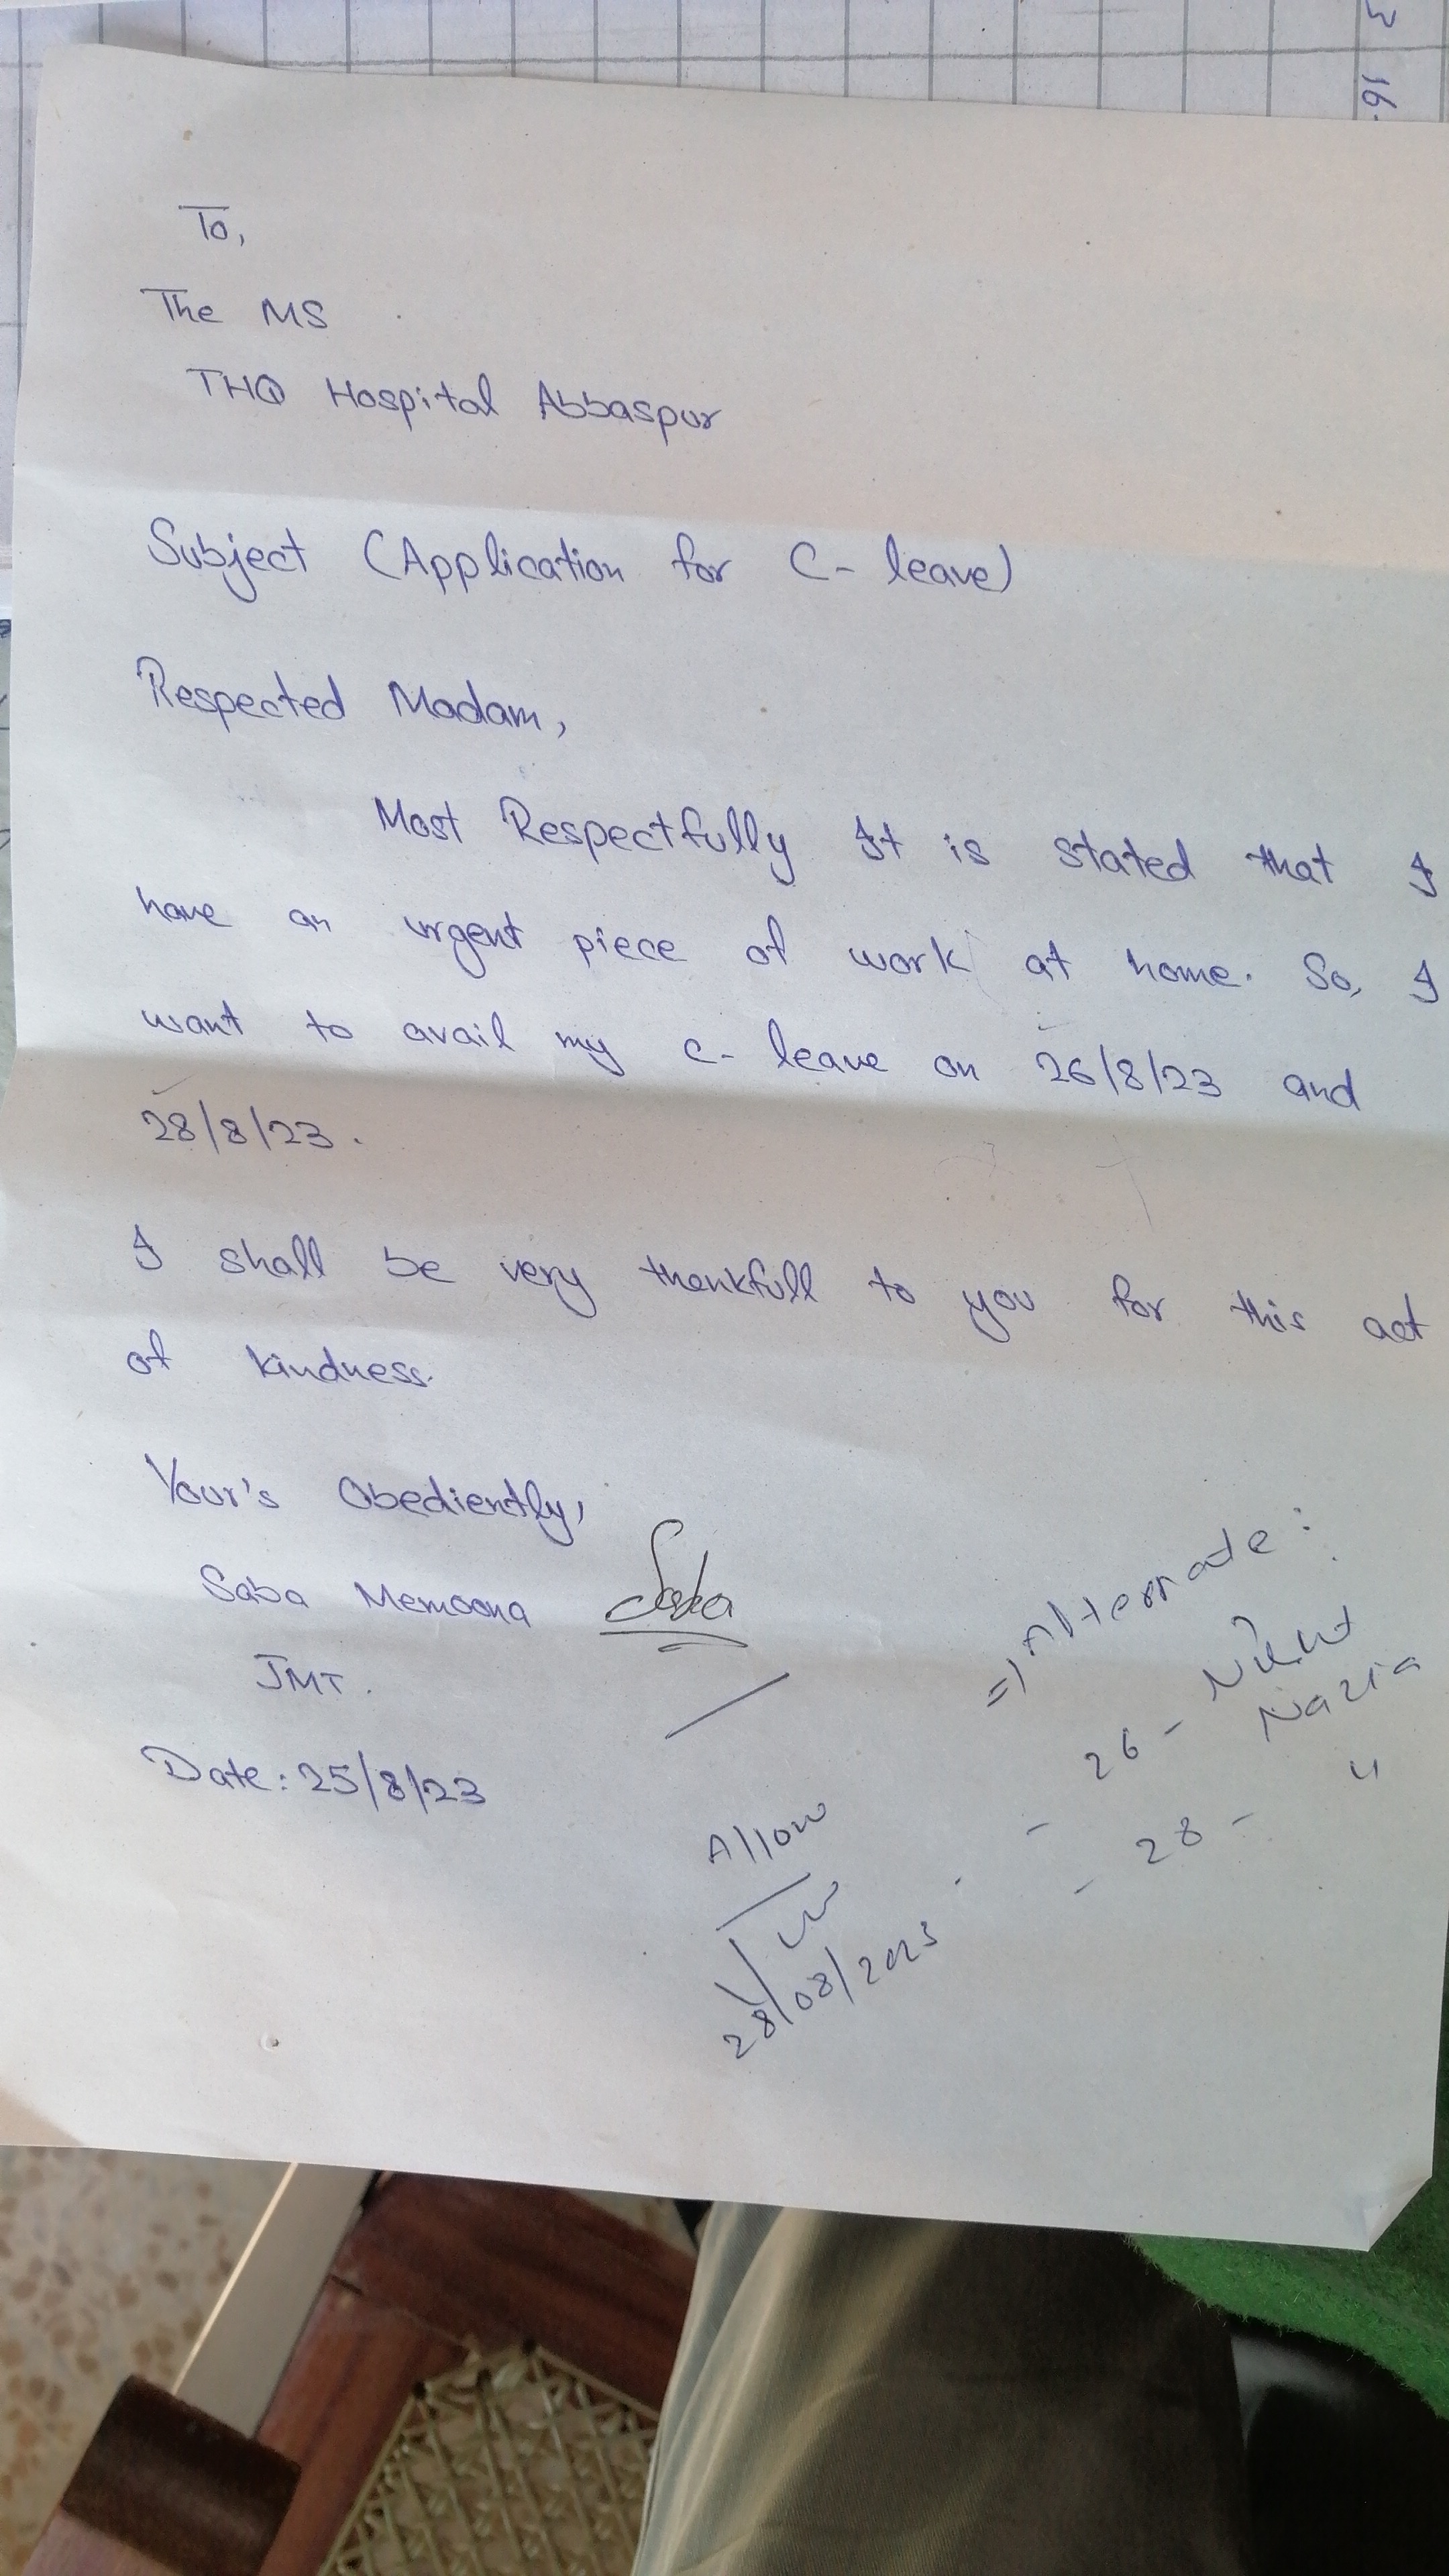 To,
The MS
THQ Hospital Abbaspur
Subject (Application for C- leave)
Respected Madam,
Most Respectfully It is stated that I
have an urgent piece of work at home. So, I
want to avail my C- leave on 26/8/23 and
28/8/23.
I shall be very thankfull to you for this act
of kindness.
Your's Obediently,
Saba Memoona Saba
JMT.
Date: 25/8/23
=) Alternate:
26 -
Nazia
- 28 - "
Allow
28/08/2023
16